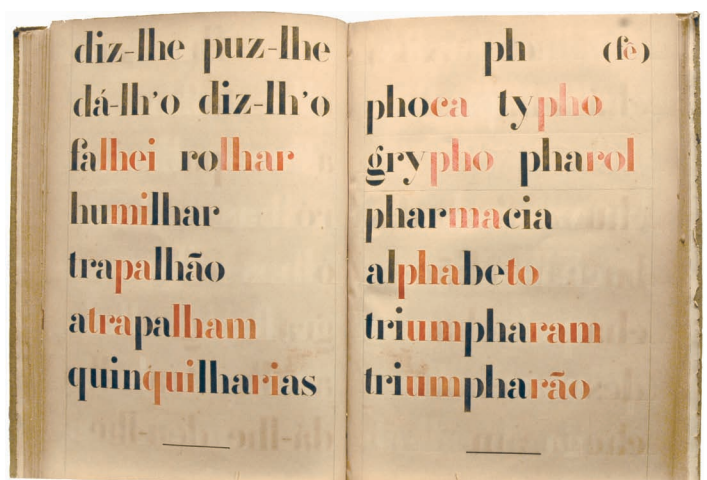 diz-lhe puz-lhe
dá-lh'o diz-lh'o
falhei rolhar
humilhar
trapalhão
atrapalham
quinquilharias
ph (fê)
phoca typho
grypho pharol
pharmacia
alphabeto
triumpharam
triumpharão